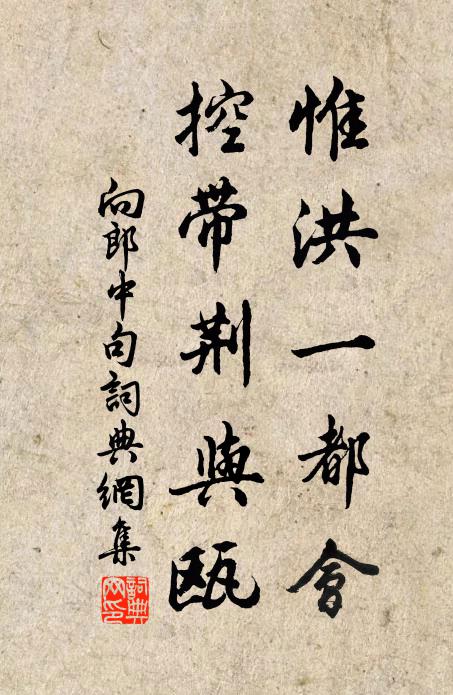 惟洪一都會
控帶荆與甌
向郎中句詞典網集
詞典网印